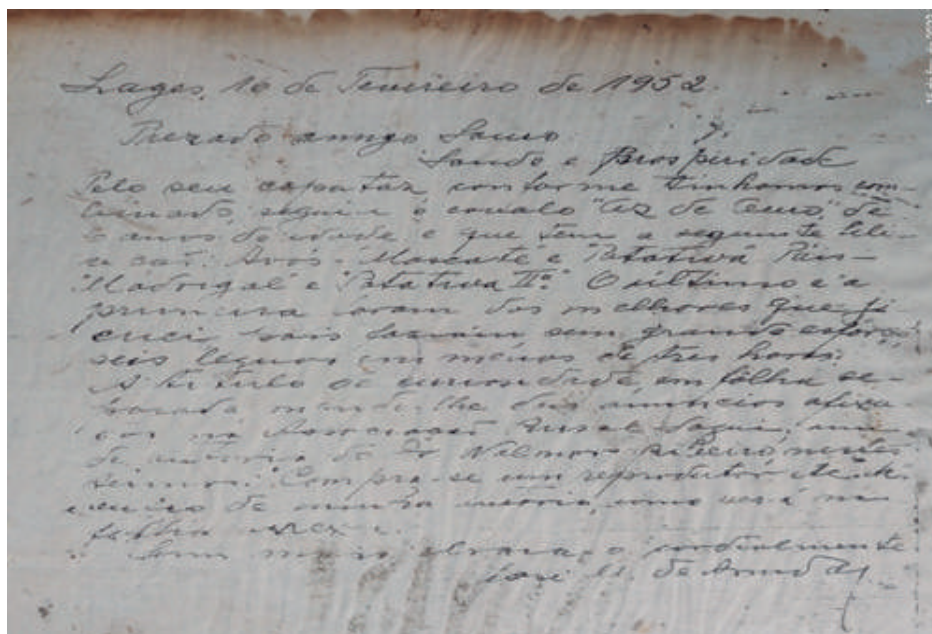 Lages, 10 de Fevereiro de 1952.
Prezado amigo
Saude e Prosperidade
Pelo seu capataz conforme tinhamos com-
binado, seguiu o cavalo "Az de Ouro", de
anos de idade, e que tem a seguinte fili-
ação: Avós - Mascate e "Patativa" Pais -
"Madrigal e "Patativa IIª." O ultimo e a
primeira foram dos melhores que já
criei, pois faziam sem grande esforço
seis leguas em menos de tres horas.
A titulo de curiosidade, em fôlha se-
parada mando-lhe dois anuncios afixa-
dos na Associação Rural
de autoria do Nilmor Ribeiro, nestes
termos: Compra-se um reprodutor
de minha autoria, como verá na
folha
Sem mais abraça-o cordialmente
José de